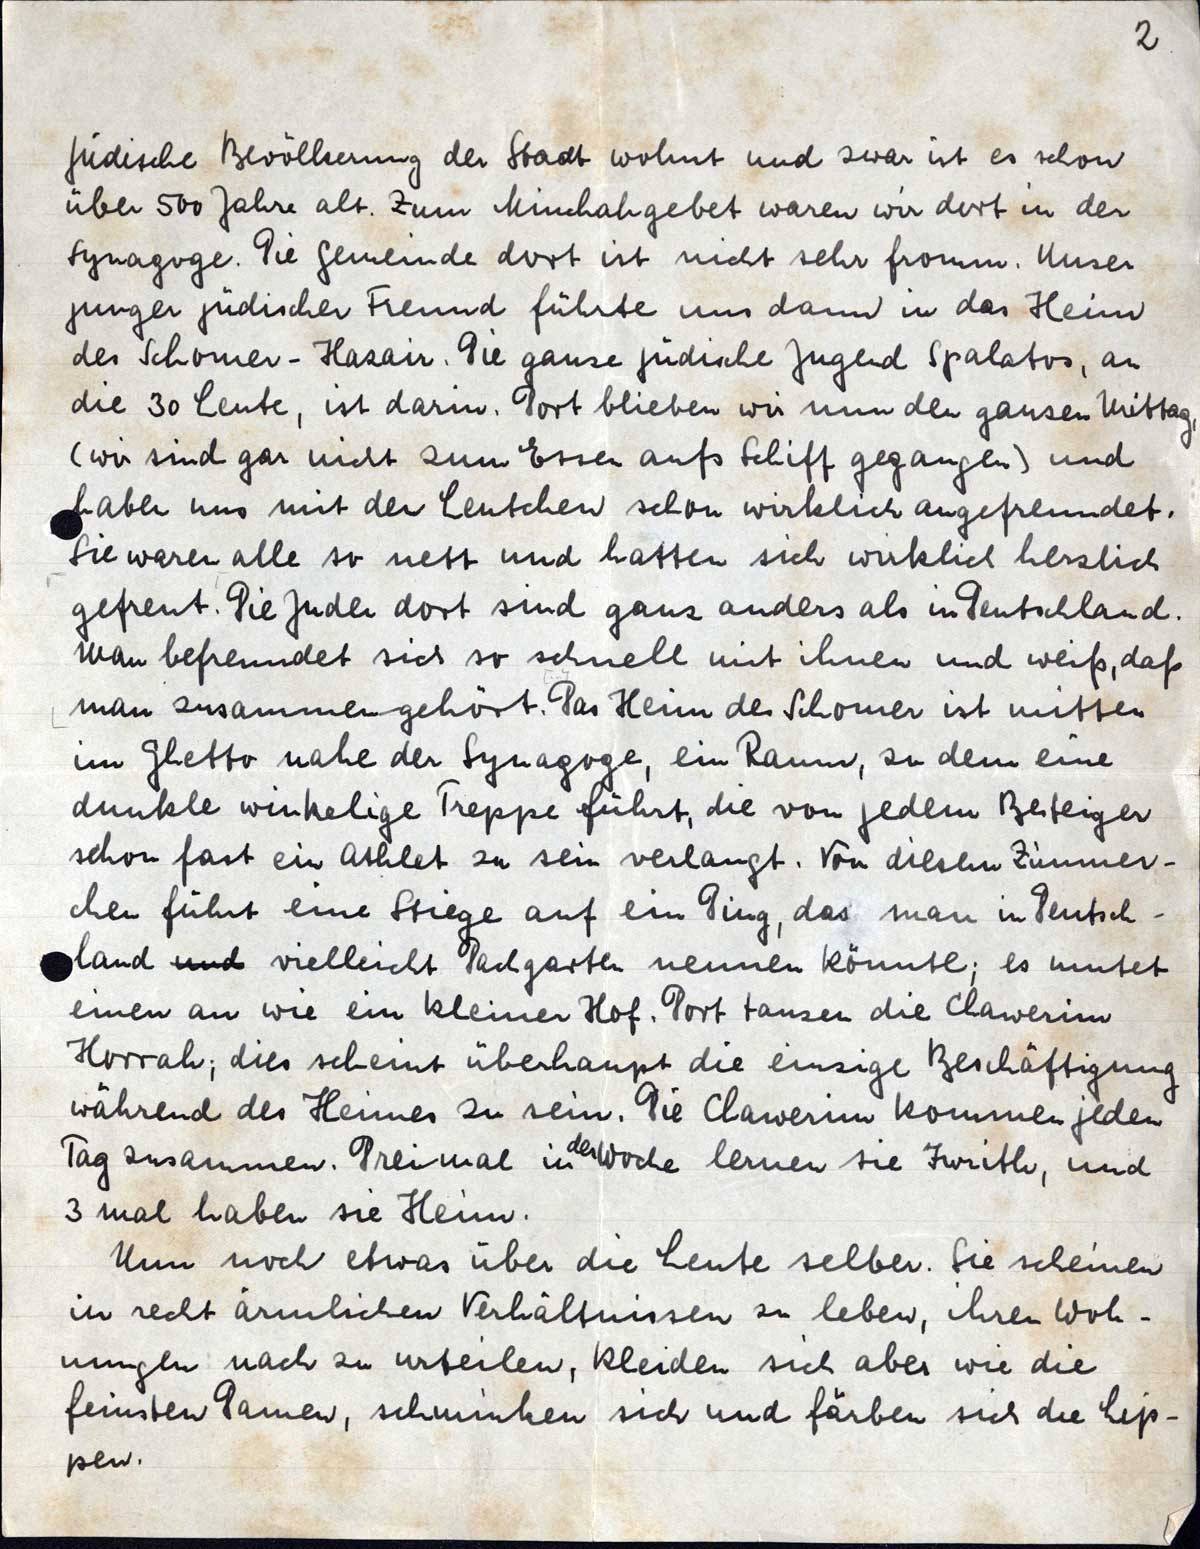 2
jüdische Bevölkerung der Stadt wohnt und zwar ist es schon
über 500 Jahre alt. Zum Minchahgebet waren wir dort in der
Synagoge. Die Gemeinde dort ist nicht sehr fromm. Unser
junger jüdischer Freund führte uns dann in das Heim
des Schomer-Hazair. Die ganze jüdische Jugend Spalatos, an
die 30 Leute, ist darin. Dort blieben wir nun den ganzen Mittag,
(wir sind gar nicht zum Essen aufs Schiff gegangen) und
haben uns mit den Leutchen schon wirklich angefreundet.
Sie waren alle so nett und hatten sich wirklich herzlich
gefreut. Die Juden dort sind ganz anders als in Deutschland.
Man befreundet sich so schnell mit ihnen und weiß, daß
man zusammengehört. Das Heim des Schomer ist mitten
im Ghetto nahe der Synagoge, ein Raum, zu dem eine
dunkle winkelige Treppe führt, die von jedem Besteiger
schon fast ein Athlet zu sein verlangt. Von diesem Zimmer-
chen führt eine Stiege auf ein Ding, das man in Deutsch-
land und vielleicht Dachgarten nennen könnte; es mutet
einen an wie ein kleiner Hof. Dort tanzen die Chawerim
Horrah; dies scheint überhaupt die einzige Beschäftigung
während des Heimes zu sein. Die Chawerim kommen jeden
Tag zusammen. Dreimal in der Woche lernen sie Iwrith, und
3 mal haben sie Heim.
Nun noch etwas über die Leute selber. Sie scheinen
in recht ärmlichen Verhältnissen zu leben, ihren Woh-
nungen nach zu urteilen, kleiden sich aber wie die
feinsten Damen, schminken sich und färben sich die Lip-
pen.